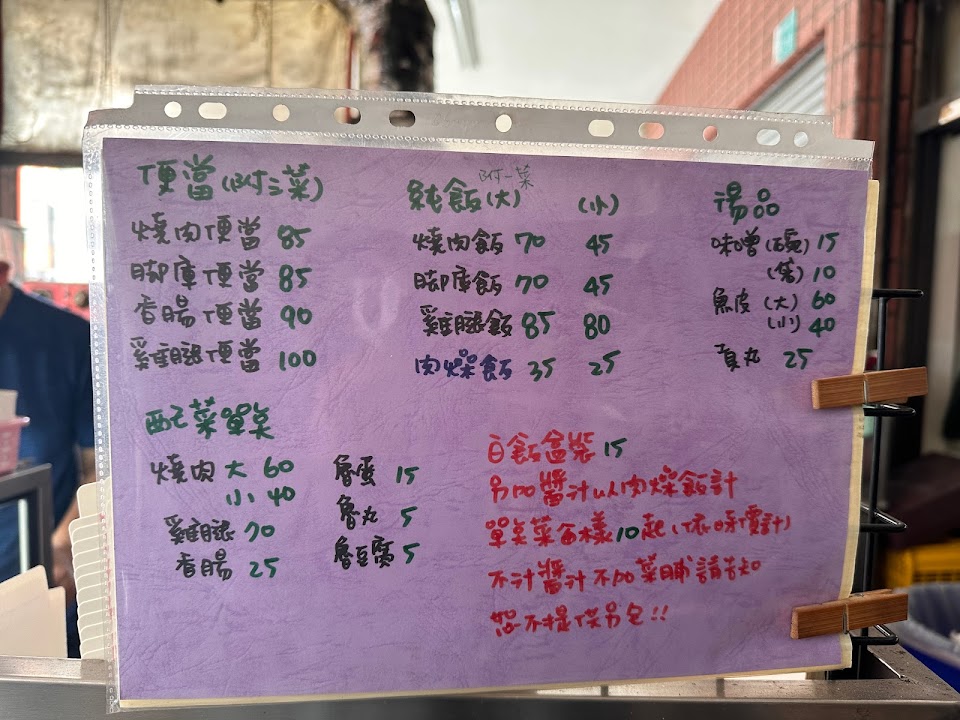 便當(附三菜)
燒肉便當 85
脚庫便當 85
香腸便當 90
雞腿便當 100
附一菜
純飯(大) (小)
燒肉飯 70 45
脚庫飯 70 45
雞腿飯 85 80
肉燥飯 35 25
湯品
味噌(碗) 15
(袋) 10
魚皮(大) 60
(小) 40
貢丸 25
配菜單點
燒肉 大 60
小 40
雞腿 70
香腸 25
魯蛋 15
魯丸 5
魯豆腐 5
白飯盒裝 15
另加醬汁以肉燥飯計
單點菜每樣10起(依時價計)
不汁醬汁不加菜脯請告知
恕不提供另包!!